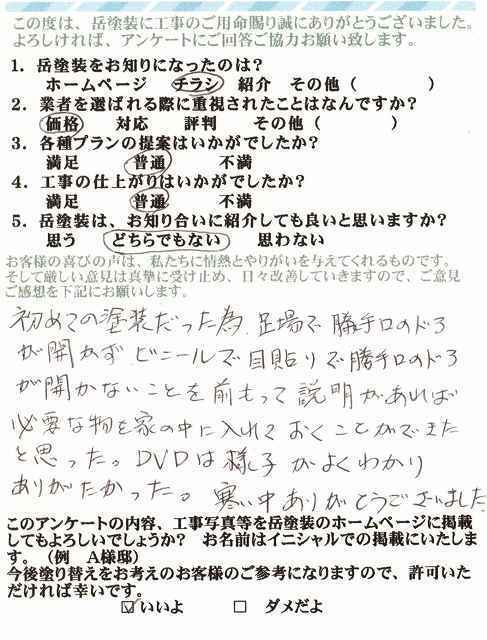 この度は、岳塗装に工事のご用命賜り誠にありがとうございました。
よろしければ、アンケートにご回答ご協力お願い致します。
1．岳塗装をお知りになったのは？
ホームページ　チラシ　紹介　その他（　　　　）
2．業者を選ばれる際に重視されたことはなんですか？
価格　　対応　　評判　　その他（　　　　）
3．各種プランの提案はいかがでしたか？
満足　　　普通　　　不満
4．工事の仕上がりはいかがでしたか？
満足　　　普通　　　不満
5．岳塗装は、お知り合いに紹介しても良いと思いますか？
思う　　どちらでもない　　思わない
お客様の喜びの声は、私たちに情熱とやりがいを与えてくれるものです。
そして厳しい意見は真摯に受け止め、日々改善していきますので、ご意見
ご感想を下記にお願いします。
初めての塗装だった為、足場で勝手口のドア
が開かず、ビニールで目貼りで勝手口のドア
が開かないことを前もって説明があれば
必要な物を家の中に入れておくことができた
と思った。DVDは様子がよくわかり
ありがたかった。寒い中ありがとうございました
このアンケートの内容、工事写真等を岳塗装のホームページに掲載
してもよろしいでしょうか？　お名前はイニシャルでの掲載にいたしま
す。（例　A様邸）
今後塗り替えをお考えのお客様のご参考になりますので、許可いた
だければ幸いです。
☑いいよ　　　□　ダメだよ